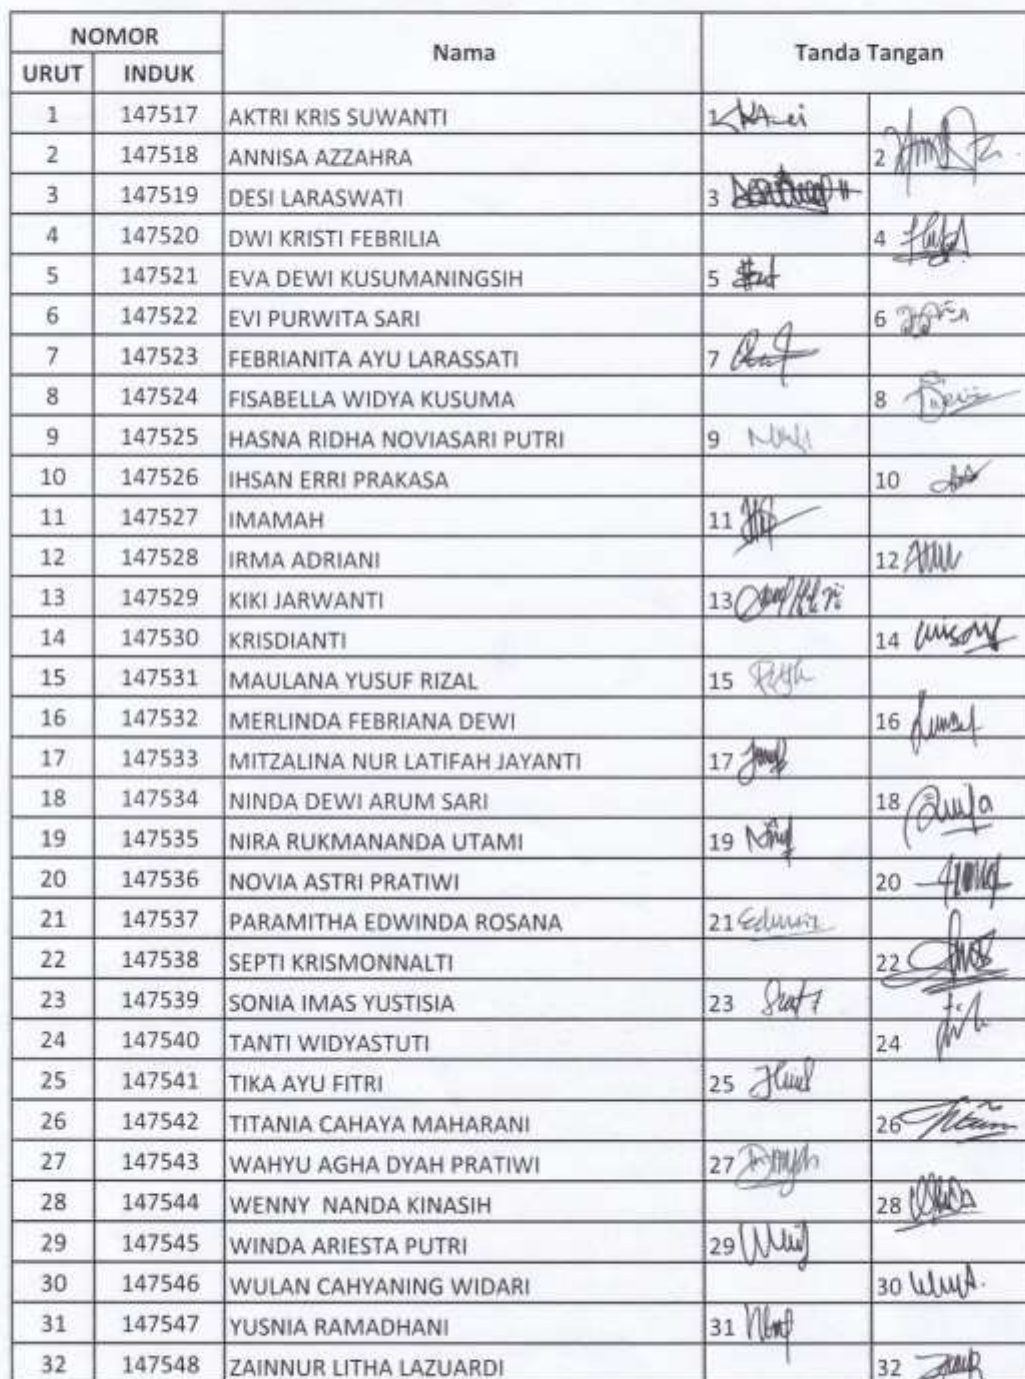 NOMOR Nama Tanda Tangan
URUT INDUK
1 147517 AKTRI KRIS SUWANTI 1
2 147518 ANNISA AZZAHRA 2
3 147519 DESI LARASWATI 3
4 147520 DWI KRISTI FEBRILIA 4
5 147521 EVA DEWI KUSUMANINGSIH 5
6 147522 EVI PURWITA SARI 6
7 147523 FEBRIANITA AYU LARASSATI 7
8 147524 FISABELLA WIDYA KUSUMA 8
9 147525 HASNA RIDHA NOVIASARI PUTRI 9
10 147526 IHSAN ERRI PRAKASA 10
11 147527 IMAMAH 11
12 147528 IRMA ADRIANI 12
13 147529 KIKI JARWANTI 13
14 147530 KRISDIANTI 14
15 147531 MAULANA YUSUF RIZAL 15
16 147532 MERLINDA FEBRIANA DEWI 16
17 147533 MITZALINA NUR LATIFAH JAYANTI 17
18 147534 NINDA DEWI ARUM SARI 18
19 147535 NIRA RUKMANANDA UTAMI 19
20 147536 NOVIA ASTRI PRATIWI 20
21 147537 PARAMITHA EDWINDA ROSANA 21
22 147538 SEPTI KRISMONNALTI 22
23 147539 SONIA IMAS YUSTISIA 23
24 147540 TANTI WIDYASTUTI 24
25 147541 TIKA AYU FITRI 25
26 147542 TITANIA CAHAYA MAHARANI 26
27 147543 WAHYU AGHA DYAH PRATIWI 27
28 147544 WENNY NANDA KINASIH 28
29 147545 WINDA ARIESTA PUTRI 29
30 147546 WULAN CAHYANING WIDARI 30
31 147547 YUSNIA RAMADHANI 31
32 147548 ZAINNUR LITHA LAZUARDI 32